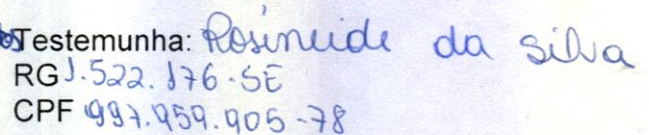 Testemunha: Rosineide da Silva
RG 1.522.176-SE
CPF 997.959.905-78